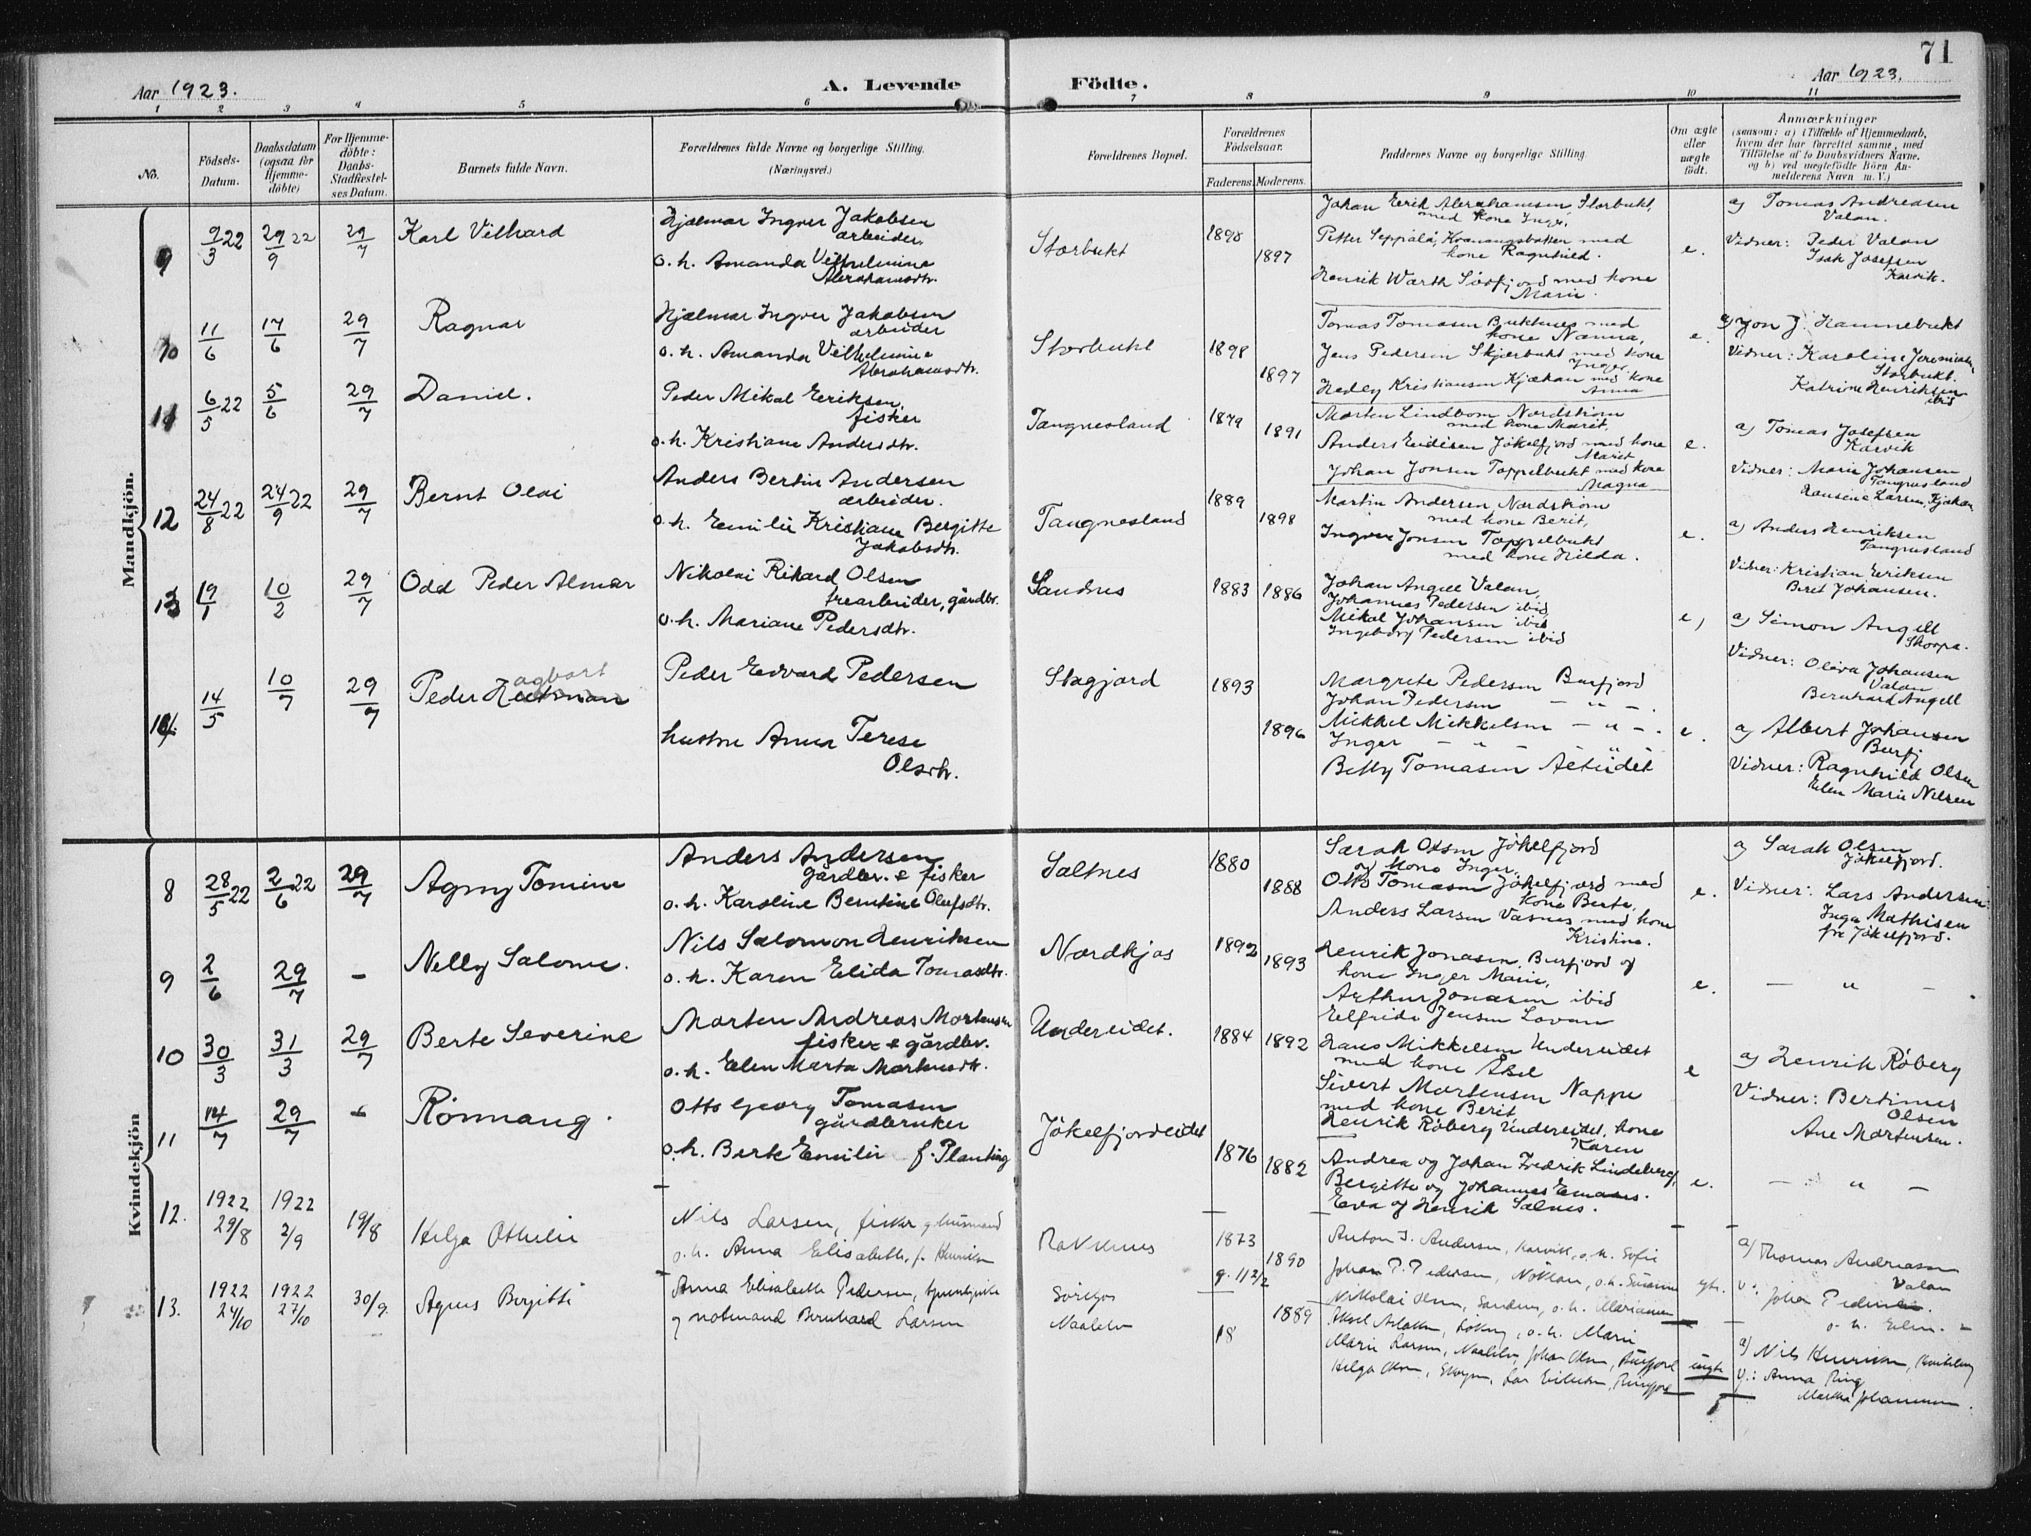 71
Aar 1923. A. Levende Födte. Aar 1923.
1 2 3 4 5 6 7 8 9 10 11
No. Födsels-Datum. Daabsdatum (ogsaa för Hjemme-döbte) For Hjemme-döbte: Daabs-Stadfæstel-ses Datum. Barnets fulde Navn. Forældrenes fulde Navne og borgerlige Stilling. (Næringsvei.) Forældrenes Bopæl. Forældrenes Födselsaar. Faderens. Moderens. Faddernes Navne og borgerlige Stilling. Om ægte eller uægte födt. Anmærkninger (saasom: a) i Tilfælde af Hjemmedaab, hvem der har forrettet samme, med Tilföielse af to Daabsvidners Navne, og b) ved uægtefödte Börn An-melderens Navn m. V.)
Mandkjön.
9 9/3 22 29/9 22 29/7 Karl Vilhard
Hjalmar Ingver Jakobsen
arbeider
o. h. Amanda Vilhelmine
Abrahamsdtr.
Storbukt 1898 1897
Johan Eerik Abrahamsen, Storbukt,
med kone Inger,
Petter Seppälä, Kvænangsbotten med
kone Ragnhild.
Henrik Warth Sörfjord med kone
Marie.
e.
a) Tomas Andreasen
Valan.
Vidner: Peder Valan
Isak Josefsen
Karvik.
10 11/6 17/6 29/7 Ragnar
Hjalmar Ingver Jakobsen
arbeider
o. h. Amanda Vilhelmine
Abrahamsdtr.
Storbukt 1898 1897
Tomas Tomasen med
kone Nanna,
Jens Pedersen Skjærbukt med kone
Inger,
Hedley Kristiansen Kjækan med kone
Anna
e.
a) Jon J. Hamnebukt
Vidner: Karoline Jeremiasen
Storbukt.
Katrine Henriksen
ibid
11 6/5 22 5/6 29/7 Daniel.
Peder Mikal Eriksen,
fisker
o. h. Kristiane Andersdtr.
Tangnesland 1879 1891
Morten Lindbom Nordström
med kone Marit,
Anders Jökelfjord med kone
Maret
Johan Jonsen Toppelbukt med kone
Magna
e.
a) Tomas Josefsen
Karvik
Vidner: Marie Johansen
Tangnesland
Hansine Larsen, Kjækan
12 24/8 22 24/9 22 29/7 Bernt Olai
Anders Bertin Andersen
arbeider.
o. h. Emilie Kristiane Bergitte
Jakobsdtr.
Tangnesland 1889 1898
Martin Andersen, Nordström
med kone Berit,
Ingver Jonsen Toppelbukt
med kone Hilda.
e.
a) Anders Henriksen
Tangnesland
Vidner: Kristian Eeriksen
Beret Johansen.
13 19/1 10/2 29/7 Odd Peder Almar
Nikolai Rikard Olsen
trearbeider, gårdbr.
o. h. Mariane Pedersdtr.
Sandnes 1883 1886
Johan Angell Valan,
Johannes Pedersen ibid,
Mikal Johansen ibid
Ingeborg Pedersen ibid
e,
a) Simon Angell
Skorpa.
Vidner: Oliva Johansen
Valan
Bernhard Angell
14. 14/5 10/7 29/7 Peder
Peder Edvard Pedersen
hustru Anna Terese
Olsdtr.
Stagjord 1893 1896
Margrete Pedersen Burfjord
Johan Pedersen — " —.
Mikkel Mikkelsen — " —.
Inger — " —
Betty Tomasen
e.
a) Albert Johansen
Burfj
Vidner: Ragnhild Olsen
Elen Marie Nilsen
Kvindekjön
8 28/5 22 2/6 22 29/7 Agny Tomine
Anders Andersen
gårdbr. & fisker
o. h. Karoline Berntine Olufsdtr.
Saltnes 1880 1888
Sarah Olsen Jökelfjord
og kone Inger,
Otto Tomasen Jökelfjord med
kone Berte,
Anders Larsen Vasnes med kone
Kristine.
e.
a) Sarah Olsen
Jökelfjord.
Vidner: Lars Andersen
Inga Mathisen
fra Jökelfjord.
9 2/6 29/7 — Nelly Salome.
Nils Salomon Henriksen
o. h. Karen Elida Tomasdtr.
Nordkjos 1892 1893
Henrik Jonasen, Burfjord og
kone Inger Marie,
Arthur Jonasen ibid
Elfrida Jensen Lovan
e. — " —
10 30/3 31/3 29/7 Berte Severine
Morten Andreas Mortensen
fisker & gårdbr.
o. h. Elen Marta Mortensdtr.
Undereidet. 1884 1892
Hans Mikkelsen Undereidet
med kone Åsel
Sivert Mortensen Nappe
med kone Berit
Henrik Röberg Undereidet, kone
Karen
e
a) Henrik Röberg
Vidner: Bertinus
Olsen
Ane Mortensen.
11 14/7 29/7 — Rönnaug.
Otto Georg Tomasen
gårdbruker
o. h. Berte Emilie f. Planting
Jökelfjordeidet 1876 1882
Andrea og Johan Fredrik Lindeberg,
Bergitte og Johannes
Eva og Henrik Salnes.
e. — " —
12. 1922 29/8 1922 2/9 19/8 Helga Othilie
Nils Larsen, fisker og husmand
o. h. Anna Elisabeth, f. Henriksen
1873 1890
Anton J. Andersen, Karvik, o. h. Sofie
Johan P. Pedersen,
Nikolai Olsen, Sandnes, o. h. Mariane
gt.
a) Thomas Andreassen
Valan
v: Johan Pedersen.
o. h. Elen.
13. 1922 24/10 1922 27/10 30/9. Agnes Birgitte
Anna Elisabeth Pedersen, tjenestpike
og Bernhard Larsen
1889 18
Aksel o. h. Marie
Marie Larsen, Johan Olsen, Burfjord
Helga Olsen,
uegte
a) Nils Henriksen,
V.: Anna Ring
Martha Johannessen.